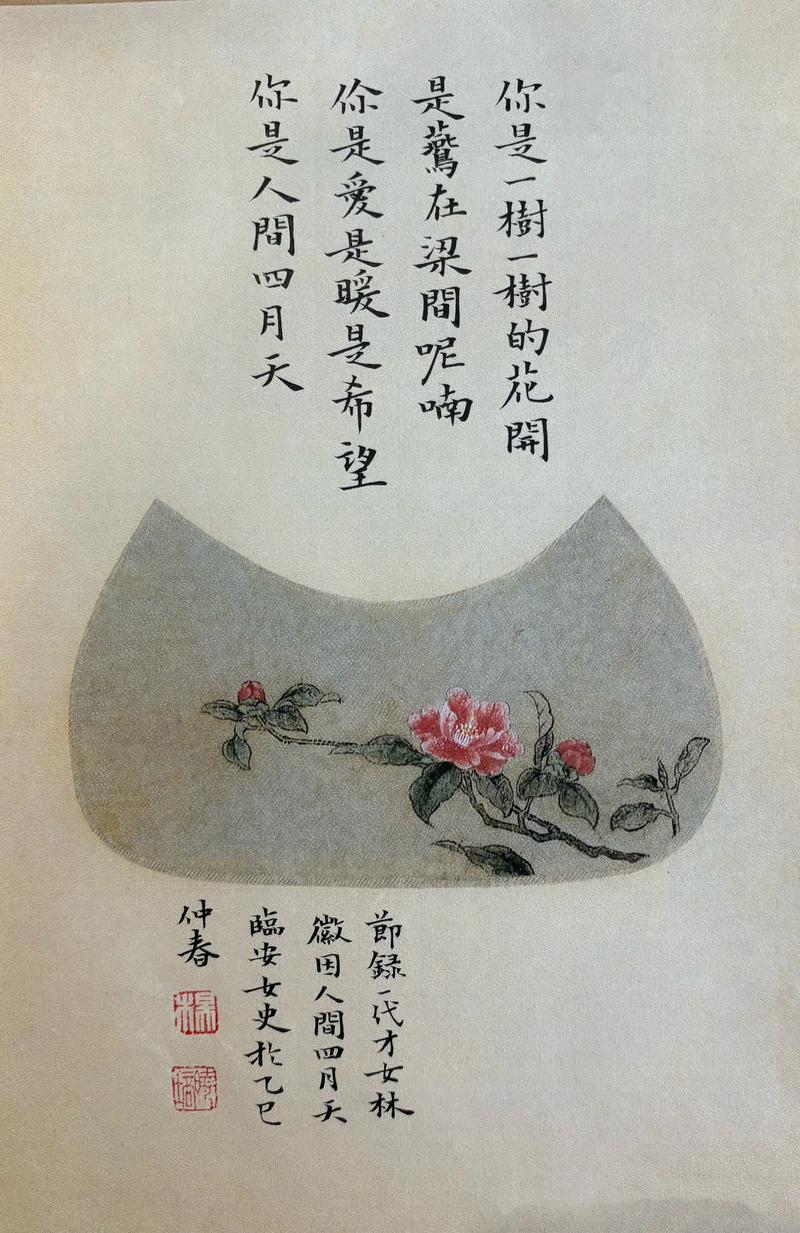 你是一樹一樹的花開
是鷰在梁間呢喃
你是愛是暖是希望
你是人間四月天
節録一代才女林
徽因人間四月天
臨安女史於乙巳
仲春